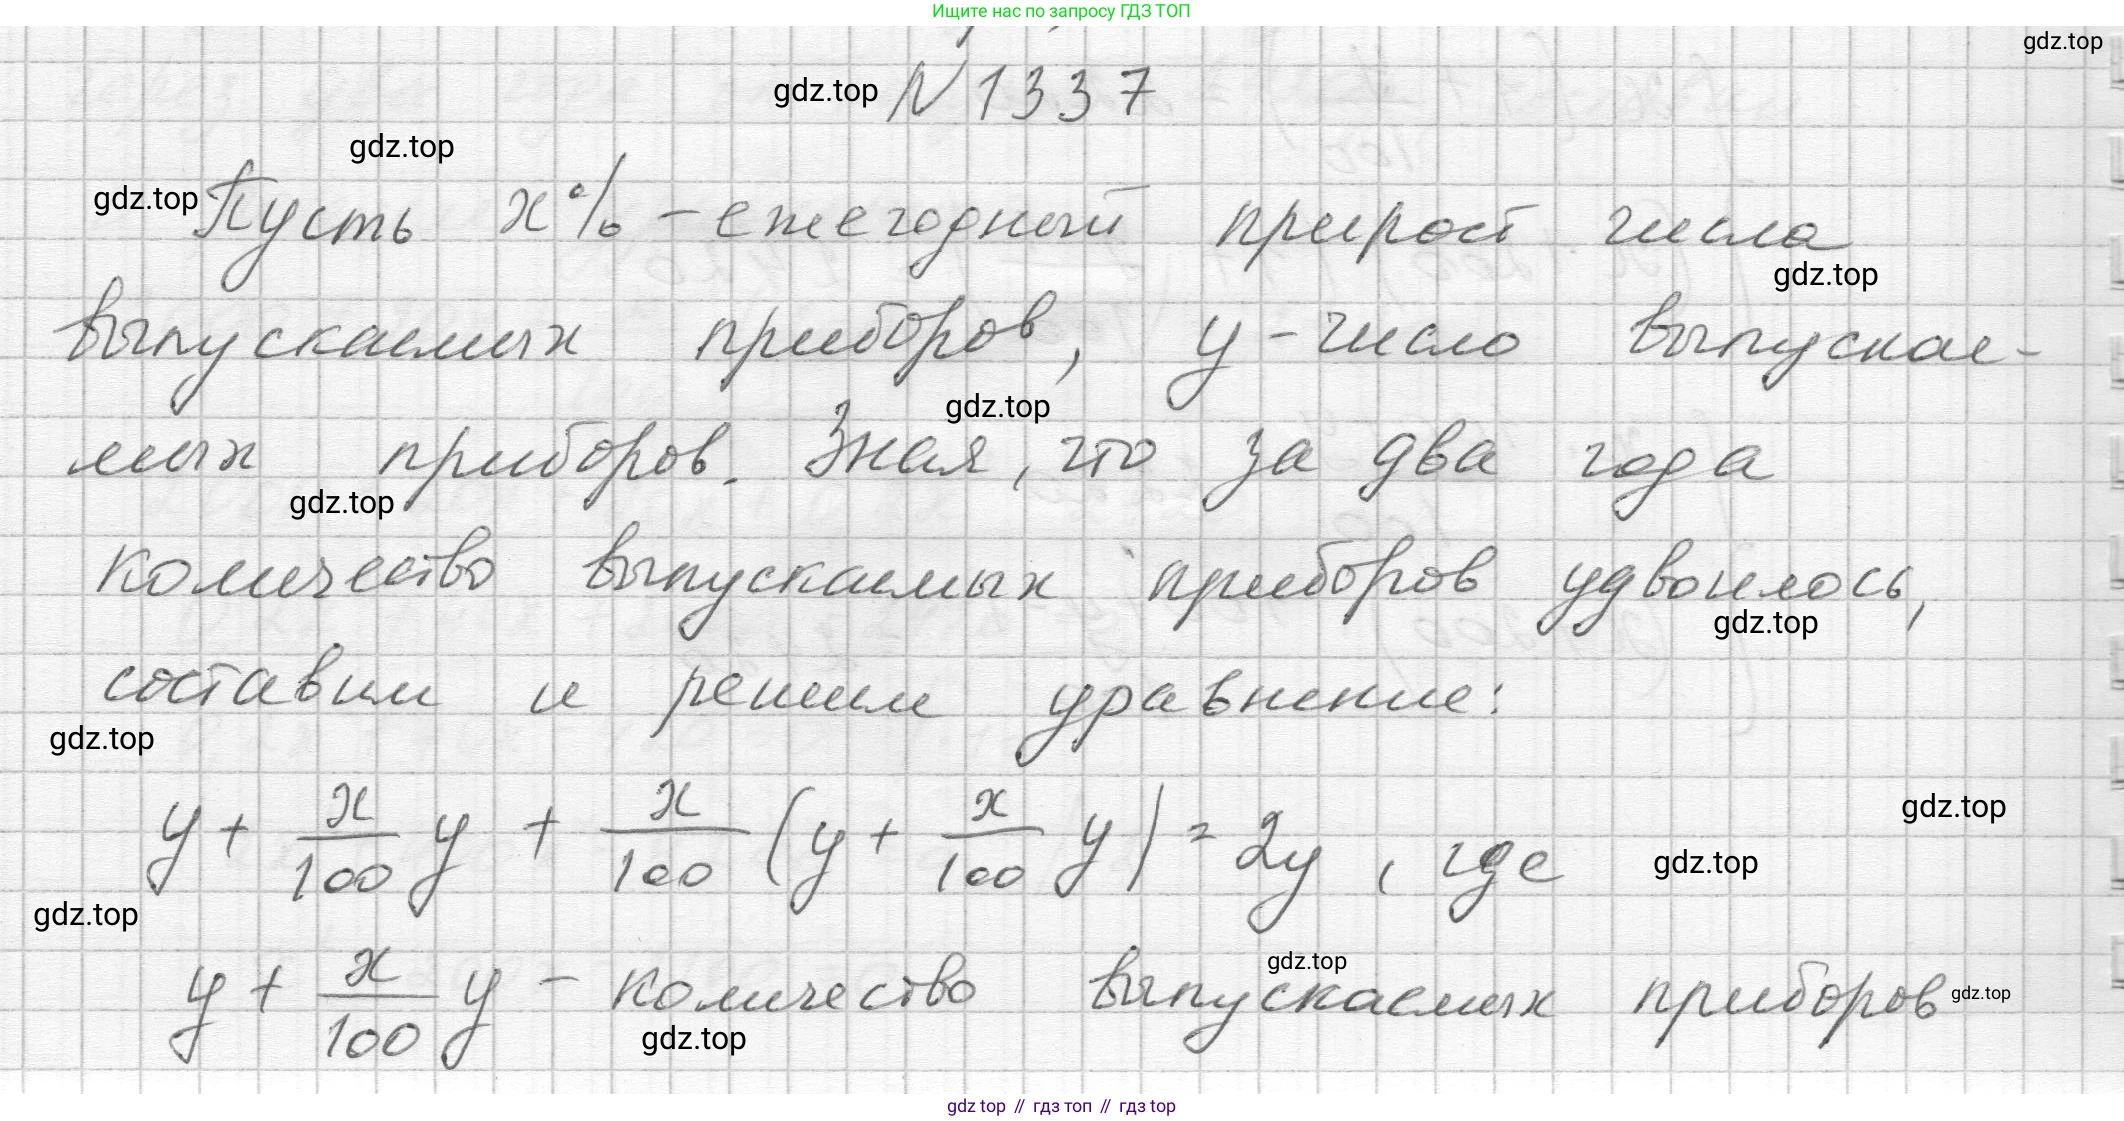 Ищите нас по запросу ГДЗ ТОП
gdz.top
gdz.top N 1337
gdz.top
gdz.top Пусть x% - ежегодный прирост числа
gdz.top
выпускаемых приборов, y - число выпускае-
gdz.top
мых приборов. Зная, что за два года
gdz.top
количество выпускаемых приборов удвоилось,
gdz.top
составим и решим уравнение:
gdz.top
y + x/100 y + x/100 (y + x/100 y) = 2y, где
gdz.top
gdz.top
gdz.top
gdz.top
y + x/100 y - количество выпускаемых приборов gdz.top
gdz.top
gdz top // гдз топ // гдз top